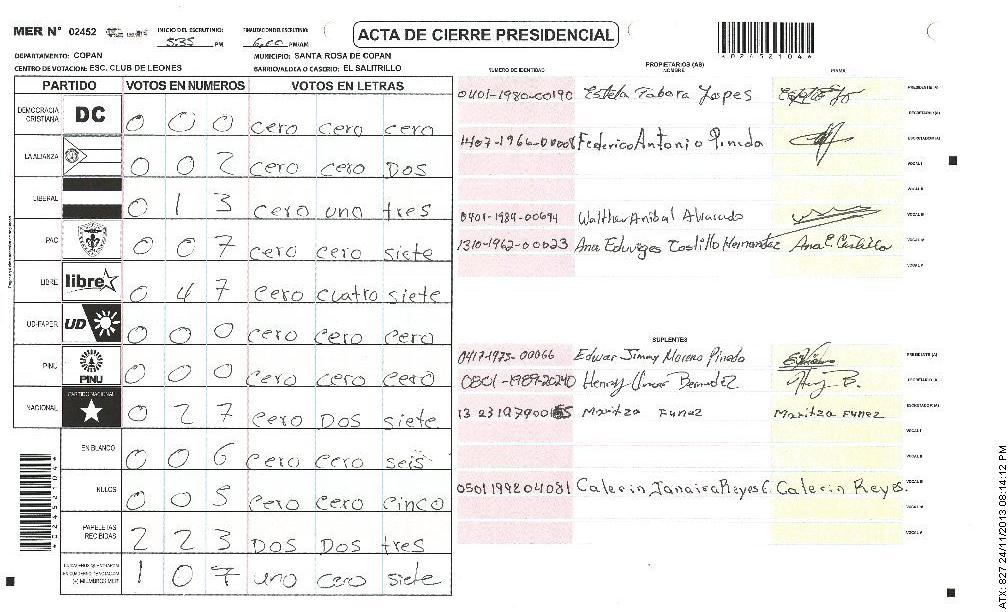 MER N° 02452
INICIO DEL ESCRUTINIO: 5:35 PM
FINALIZACION DEL ESCRUTINIO: 6:00 PM/AM
ACTA DE CIERRE PRESIDENCIAL
4024521046
DEPARTAMENTO: COPAN
MUNICIPIO: SANTA ROSA DE COPAN
CENTRO DE VOTACION: ESC. CLUB DE LEONES
BARRIO/ALDEA O CASERIO: EL SALITRILLO
PARTIDO VOTOS EN NUMEROS VOTOS EN LETRAS
DEMOCRACIA CRISTIANA DC 0 0 0 cero cero cero
LA ALIANZA 0 0 2 cero cero DOS
LIBERAL 0 1 3 cero uno tres
PAC 0 0 7 cero cero siete
LIBRE libre 0 4 7 cero cuatro siete
UD-FAPER UD 0 0 0 cero cero cero
PINU PINU 0 0 0 cero cero cero
NACIONAL PARTIDO NACIONAL 0 2 7 cero DOS siete
EN BLANCO 0 0 6 cero cero seis
NULOS 0 0 5 cero cero cinco
PAPELETAS RECIBIDAS 2 2 3 DOS DOS tres
(+) MIEMBROS MER 1 0 7 uno cero siete
PROPIETARIOS (AS)
NUMERO DE IDENTIDAD NOMBRE FIRMA
0401-1980-00190 Estela Tabora Lopes PRESIDENTE (A)
SECRETARIO (A)
1407-1966-00008 Federico Antonio Pineda ESCRUTADOR (A)
VOCAL I
VOCAL II
0401-1984-00694 Walther Anibal Alvarado VOCAL III
1310-1962-00023 Ana Eduviges Castillo Hernandez Ana E. Castillo VOCAL IV
VOCAL V
SUPLENTES
0417-1975-00066 Edwar Jimmy Moreno Pineda PRESIDENTE (A)
0801-1989-20240 Henry Omar Bermudez SECRETARIO (A)
13 23 1979 00155 Maritza Funez Maritza Funez ESCRUTADOR (A)
VOCAL I
VOCAL II
0501199204081 Calerin Janaira Reyes C. Calerin Reyes. VOCAL III
VOCAL IV
VOCAL V
ATX: 827 24/11/2013 08:14:12 PM